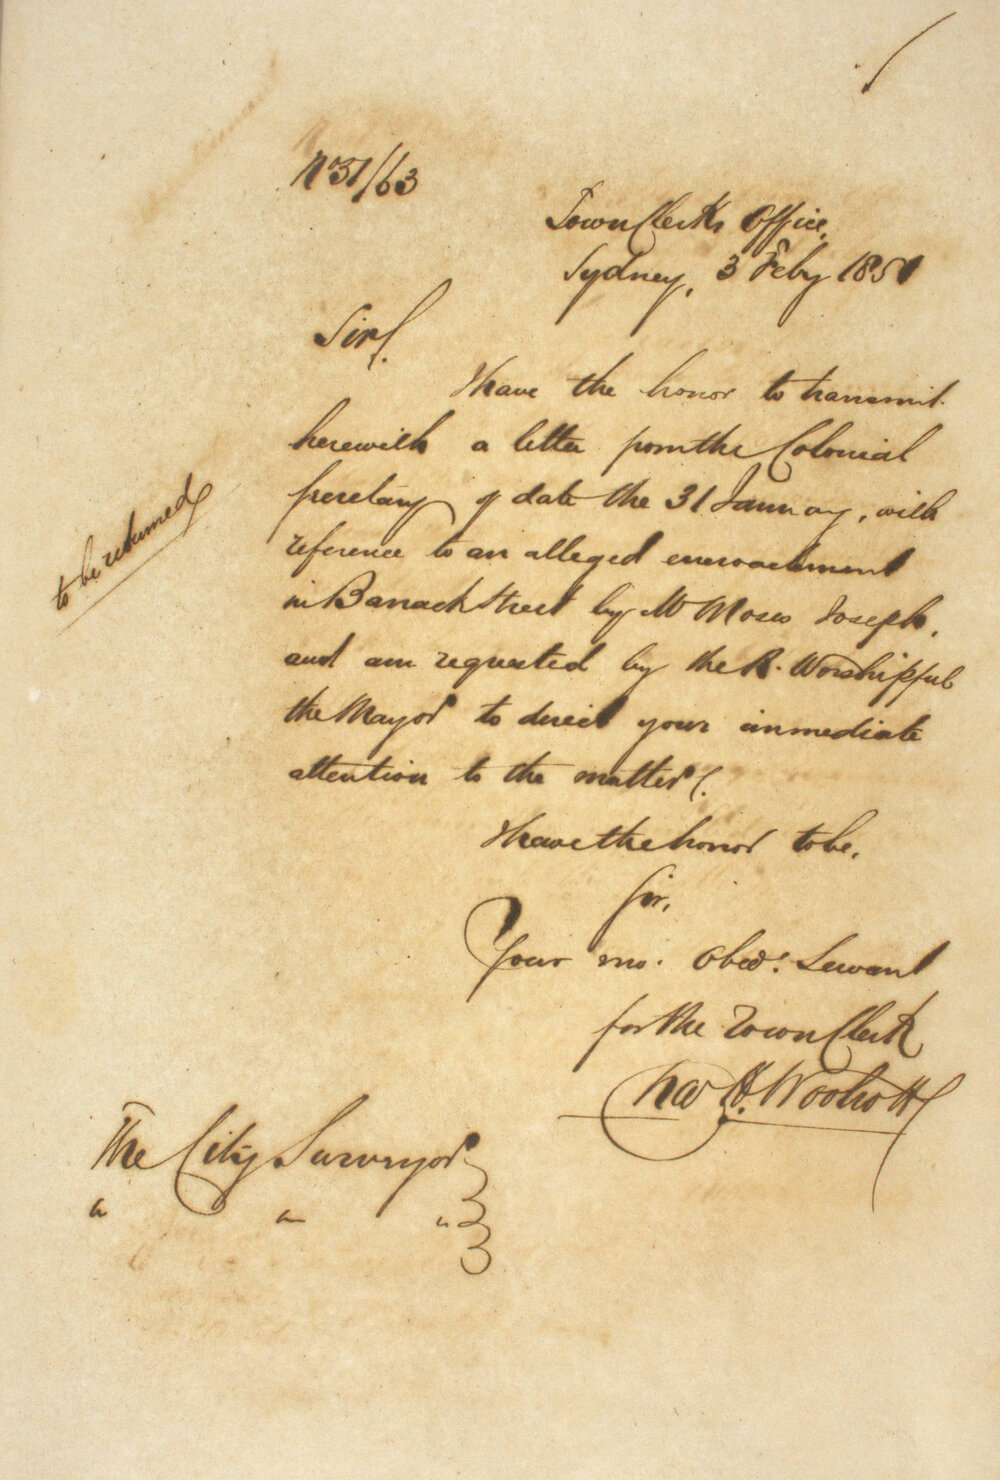 No 51/63
Town Clerks Office,
Sydney, 3 Feby 1851
Sir,
I have the honor to transmit
herewith a letter from the Colonial
Secretary of date the 31 January, with
reference to an alleged encroachment
in Barrack Street by Mr Moses Joseph,
and am requested by the R. Worshipful
the Mayor to direct your immediate
attention to the matter.
to be returned
I have the honor to be,
Sir,
Your mo. obedt. Servant
for the Town Clerk
Chas H. Woolcott
The City Surveyor
" " "